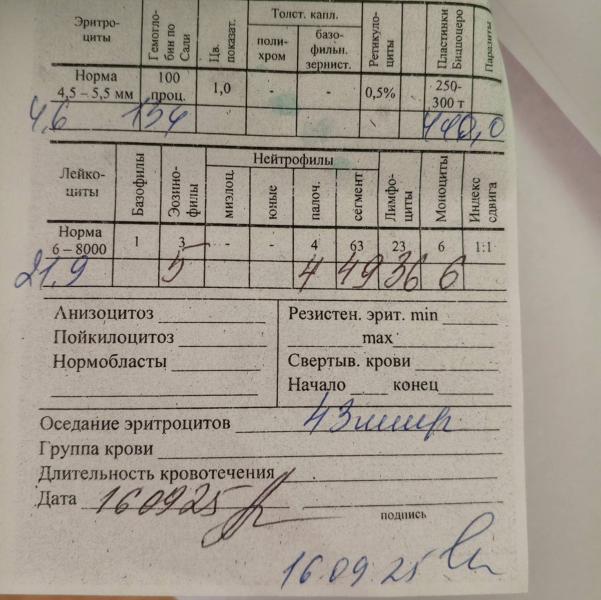 Эритроциты Гемоглобин по Сали Цв. показат. Толст. капл. полихром базофильн. зернист. Ретикулоциты Пластинки Биццоцеро Паразиты
Норма 4,5 – 5,5 мм 100 проц. 1,0 - - 0,5% 250-300 т
4,6 134 440,0
Лейкоциты Базофилы Эозинофилы Нейтрофилы миэлоц. юные палоч. сегмент Лимфоциты Моноциты Индекс сдвига
Норма 6 – 8000 1 3 - - 4 63 23 6 1:1
21,9 5 4 49 36 6
Анизоцитоз
Пойкилоцитоз
Нормобласты
Резистен. эрит. min
max
Свертыв. крови
Начало конец
Оседание эритроцитов 43 мм/ч
Группа крови
Длительность кровотечения
Дата 160925
подпись
16.09.25